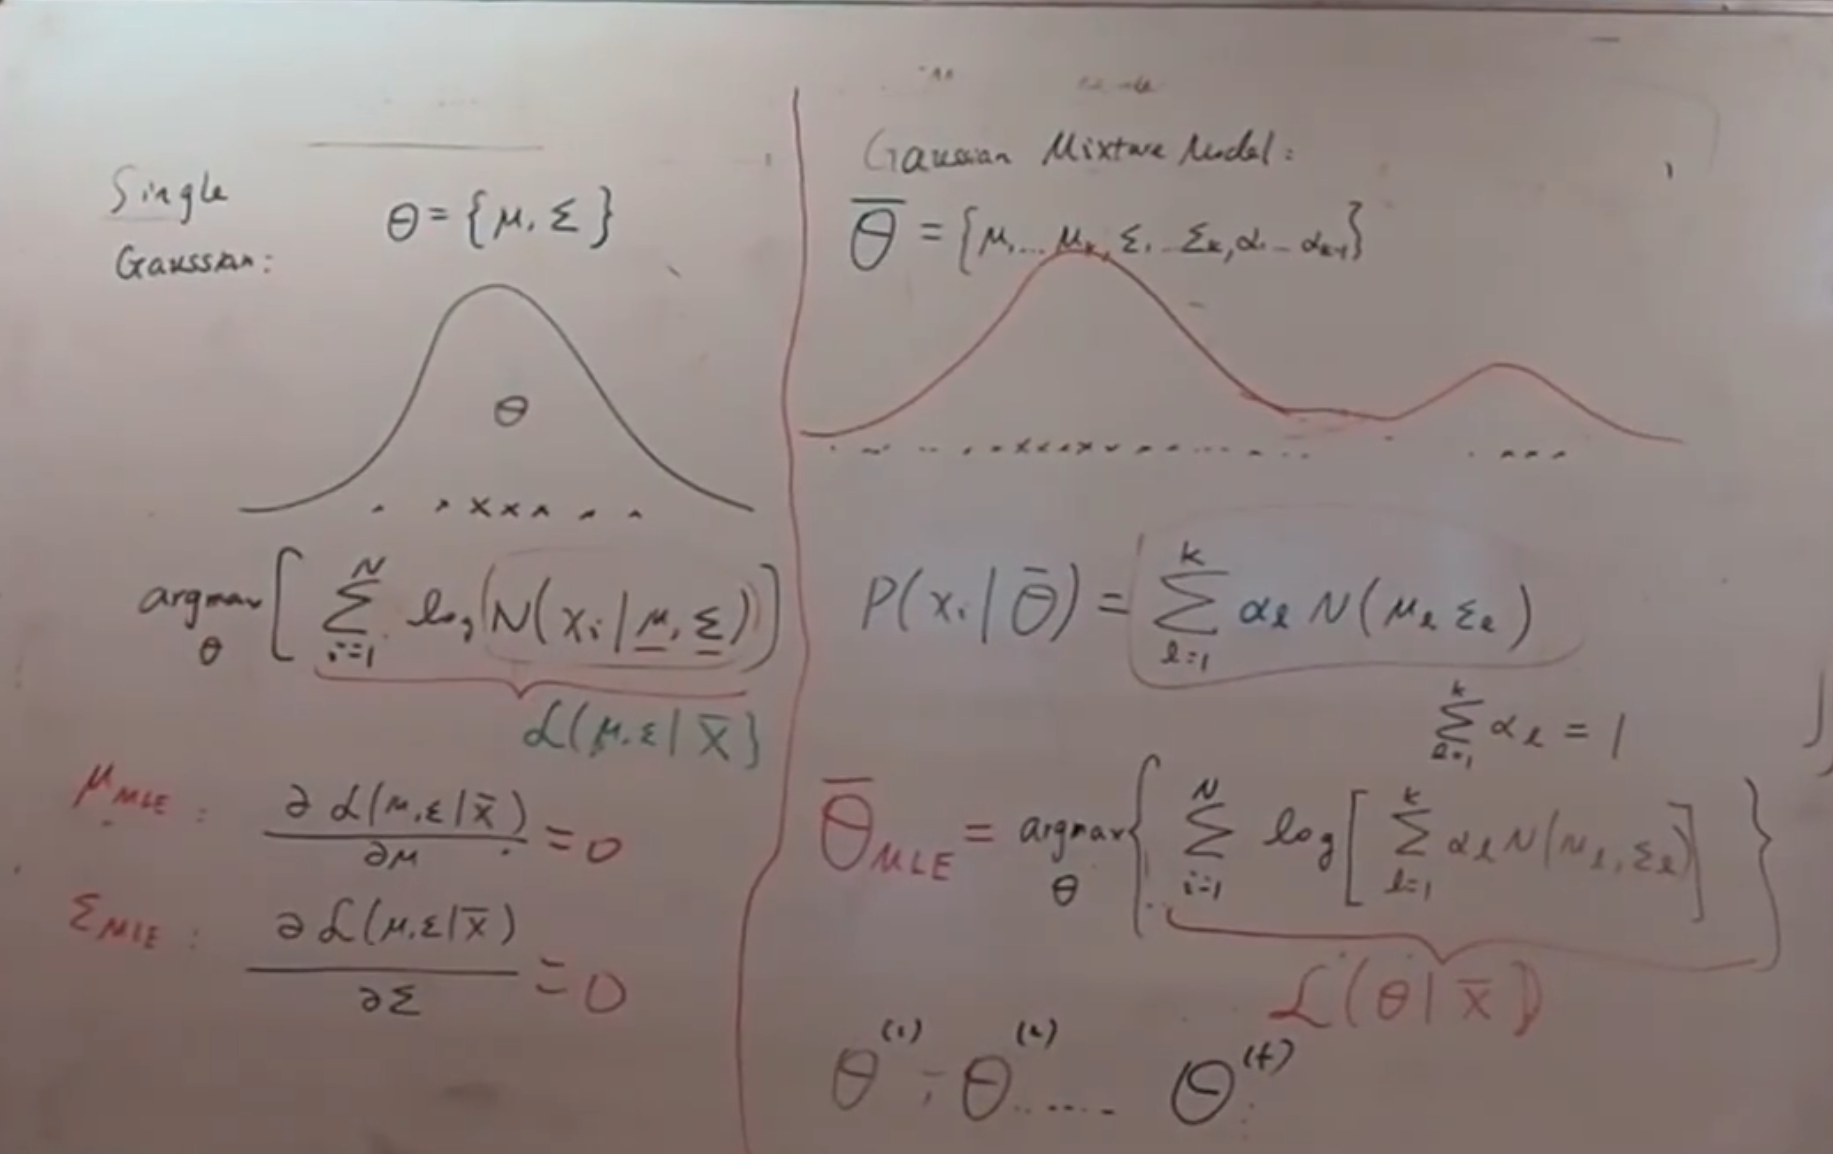 Single
Gaussian:
θ = {μ, Σ}
θ
argmax_θ [ Σ_{i=1}^{N} log(N(x_i | μ, Σ)) ]
L(μ, Σ | X̄)
μ_MLE : ∂L(μ, Σ | X̄) / ∂μ = 0
Σ_MLE : ∂L(μ, Σ | X̄) / ∂Σ = 0
Gaussian Mixture Model:
Θ̄ = {μ_1 ... μ_k, Σ_1 ... Σ_k, α_1 ... α_{k-1}}
P(x_i | Θ̄) = Σ_{l=1}^{k} α_l N(μ_l Σ_l)
Σ_{l=1}^{k} α_l = 1
Θ̄_MLE = argmax_θ { Σ_{i=1}^{N} log [ Σ_{l=1}^{k} α_l N(μ_l, Σ_l) ] }
L(θ | X̄)
Θ^(1), Θ^(2) ...... Θ^(t)